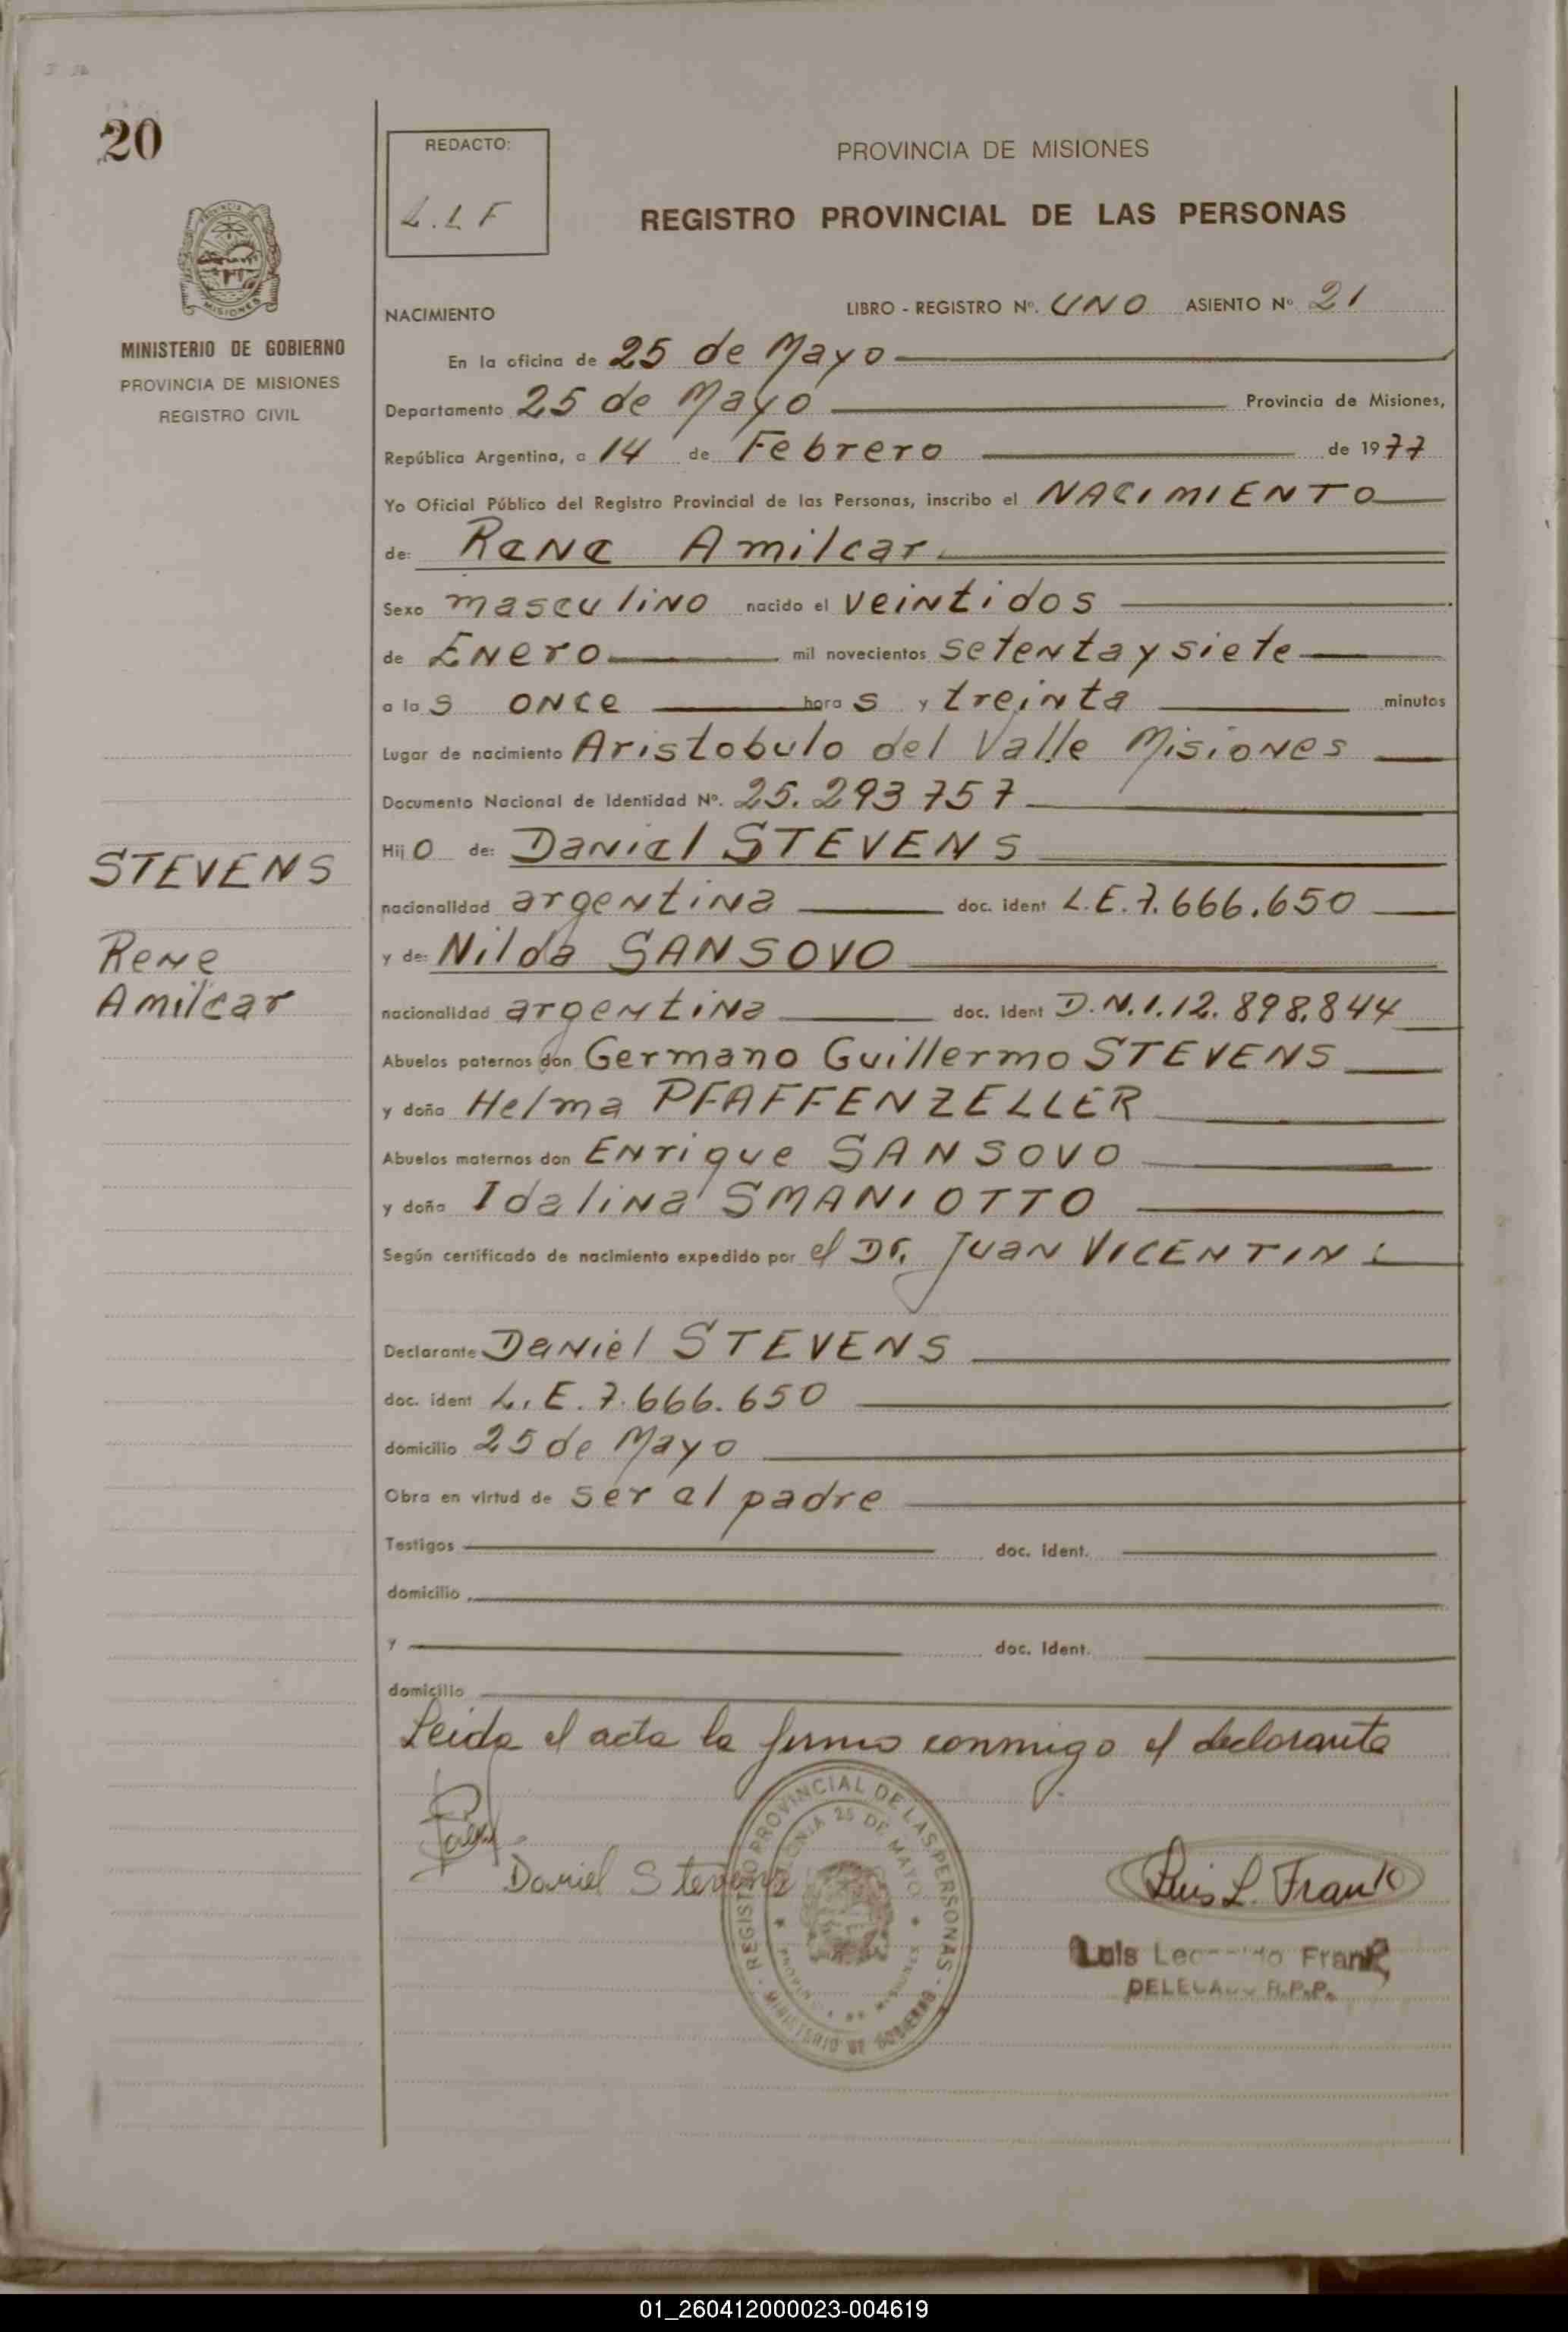 20
MINISTERIO DE GOBIERNO
PROVINCIA DE MISIONES
REGISTRO CIVIL
STEVENS
Rene
Amilcar
REDACTO:
L.L F
PROVINCIA DE MISIONES
REGISTRO PROVINCIAL DE LAS PERSONAS
NACIMIENTO LIBRO - REGISTRO Nº. UNO ASIENTO Nº 21
En la oficina de 25 de Mayo
Departamento 25 de Mayo Provincia de Misiones,
República Argentina, a 14 de Febrero de 1977
Yo Oficial Público del Registro Provincial de las Personas, inscribo el NACIMIENTO
de: Rene Amilcar
Sexo masculino nacido el veintidos
de Enero mil novecientos setenta y siete
a las once horas y treinta minutos
Lugar de nacimiento Aristobulo del Valle Misiones
Documento Nacional de Identidad Nº. 25.293757
Hijo de: Daniel STEVENS
nacionalidad argentina doc. ident L.E.7.666.650
y de: Nilda SANSOVO
nacionalidad argentina doc. ident D.N.I.12.898.844
Abuelos paternos don Germano Guillermo STEVENS
y doña Helma PFAFFENZELLER
Abuelos maternos don Enrique SANSOVO
y doña Idalina SMANIOTTO
Según certificado de nacimiento expedido por el Dr. Juan VICENTINi
Declarante Daniel STEVENS
doc. ident L.E.7.666.650
domicilio 25 de Mayo
Obra en virtud de ser el padre
Testigos doc. ident.
domicilio
y doc. Ident.
domicilio
Leida el acta la firma conmigo el declarante
Daniel Stevens
REGISTRO PROVINCIAL DE LAS PERSONAS
COLONIA 25 DE MAYO
MINISTERIO DE GOBIERNO
Luis L. Frank
Luis Frank
DELEGADO R.P.P.
01_260412000023-004619